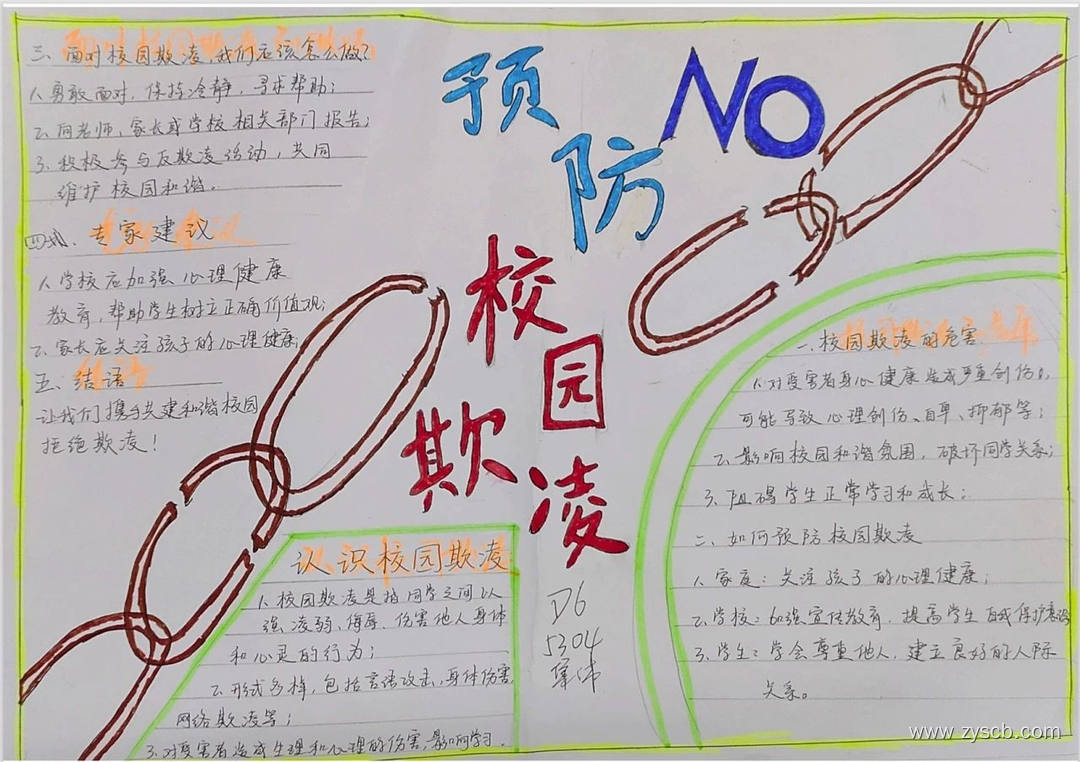 三、面对校园欺凌,我们应该怎么做?
1、勇敢面对,保持冷静,寻求帮助;
2、向老师、家长或学校相关部门报告;
3、积极参与反欺凌活动,共同
维护校园和谐。
专家建议
1、学校应加强心理健康
教育,帮助学生树立正确价值观;
2、家长应关注孩子的心理健康;
五、结语
让我们携手共建和谐校园
拒绝欺凌!
预防
校园
欺凌
NO
认识校园欺凌
1、校园欺凌是指同学之间以
强凌弱、侮辱、伤害他人身体
和心灵的行为;
2、形式多样,包括言语攻击,身体伤害,
网络欺凌等;
3、对受害者造成生理和心理的伤害,影响学习.
D6
5304
一、校园欺凌的危害
1、对受害者身心健康造成严重创伤,
可能导致心理创伤、自卑、抑郁等;
2、影响校园和谐氛围,破坏同学关系;
3、阻碍学生正常学习和成长;
二、如何预防校园欺凌
1、家庭:关注孩子的心理健康;
2、学校:加强宣传教育,提高学生自我保护意识
3、学生:学会尊重他人,建立良好的人际
关系。
www.zyscb.com